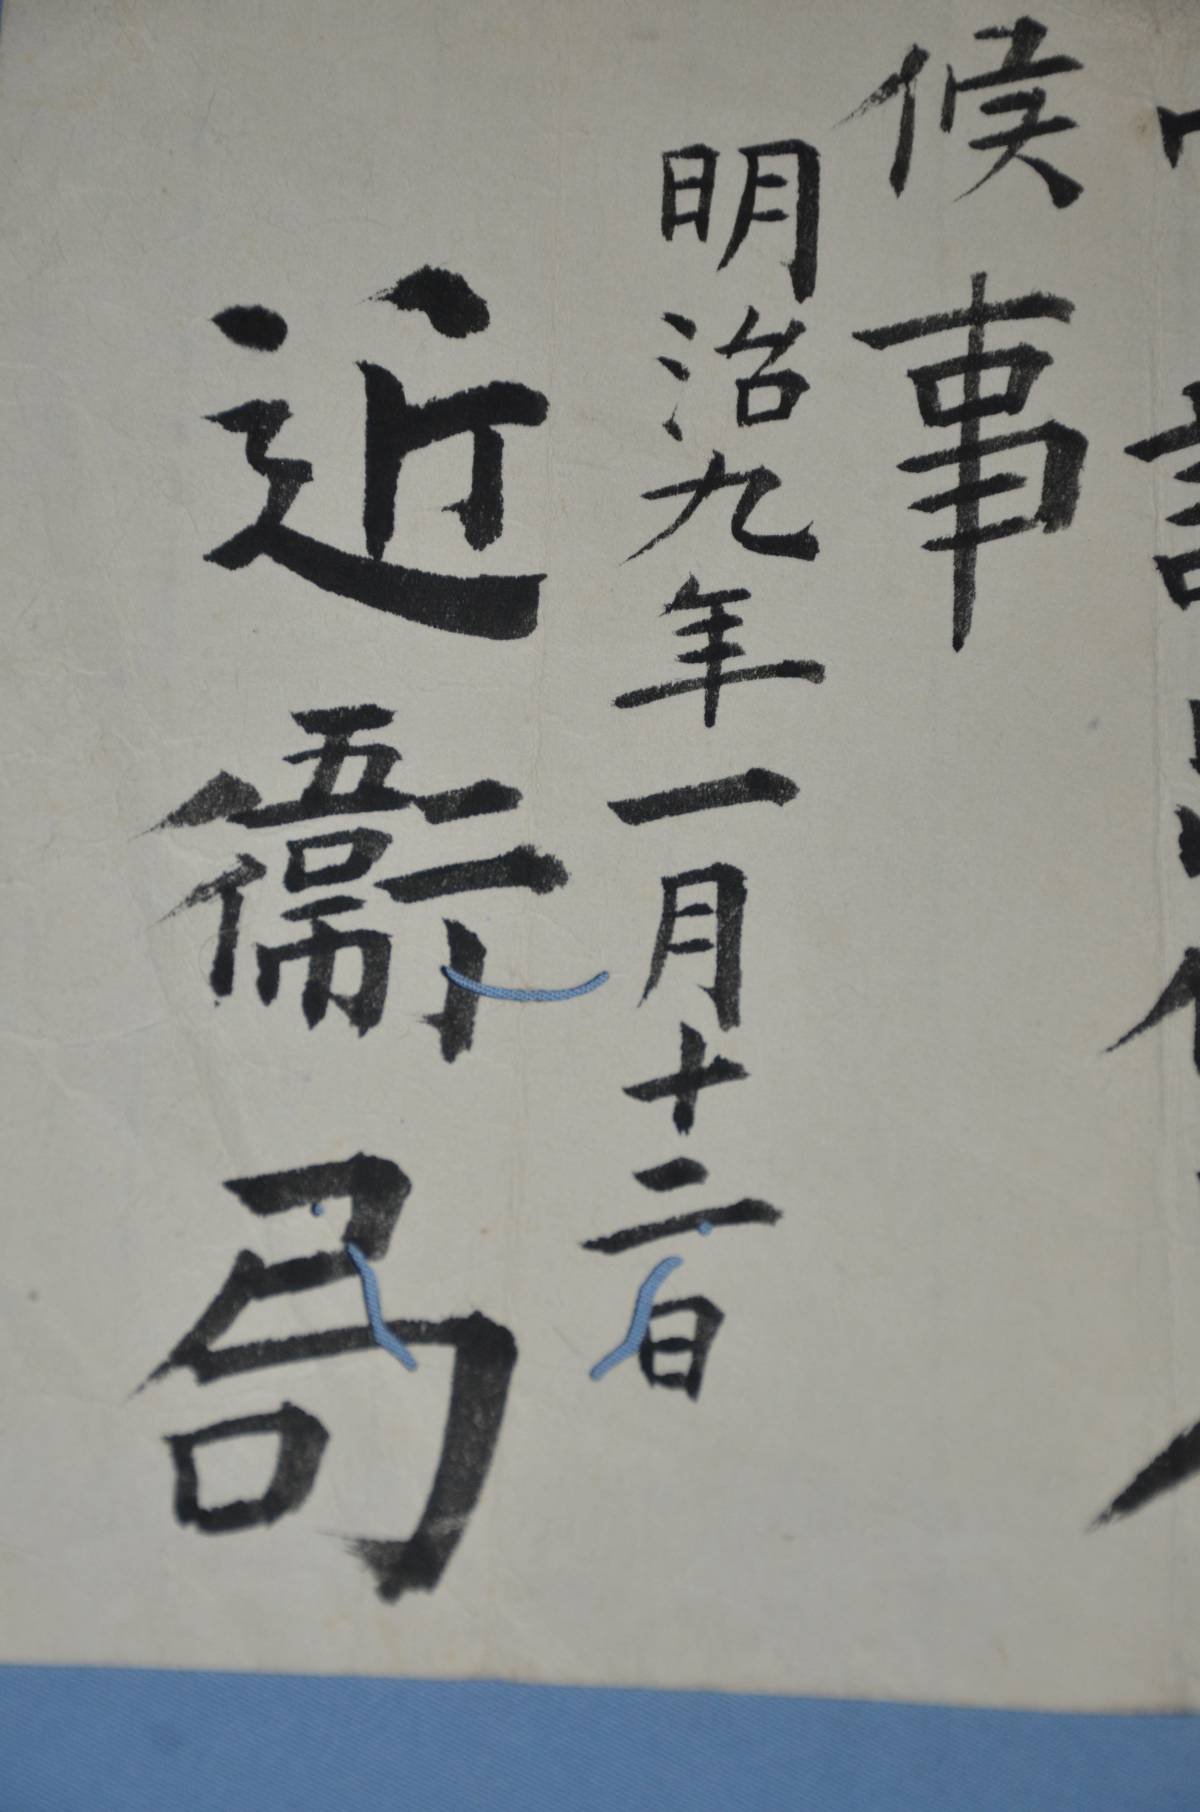 候事
明治九年一月十二日
近衞局